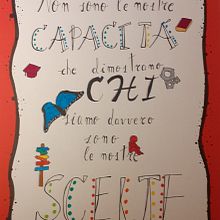 Non sono le nostre
CAPACITÀ
che dimostrano
CHI
siamo davvero
sono
le nostre
SCELTE